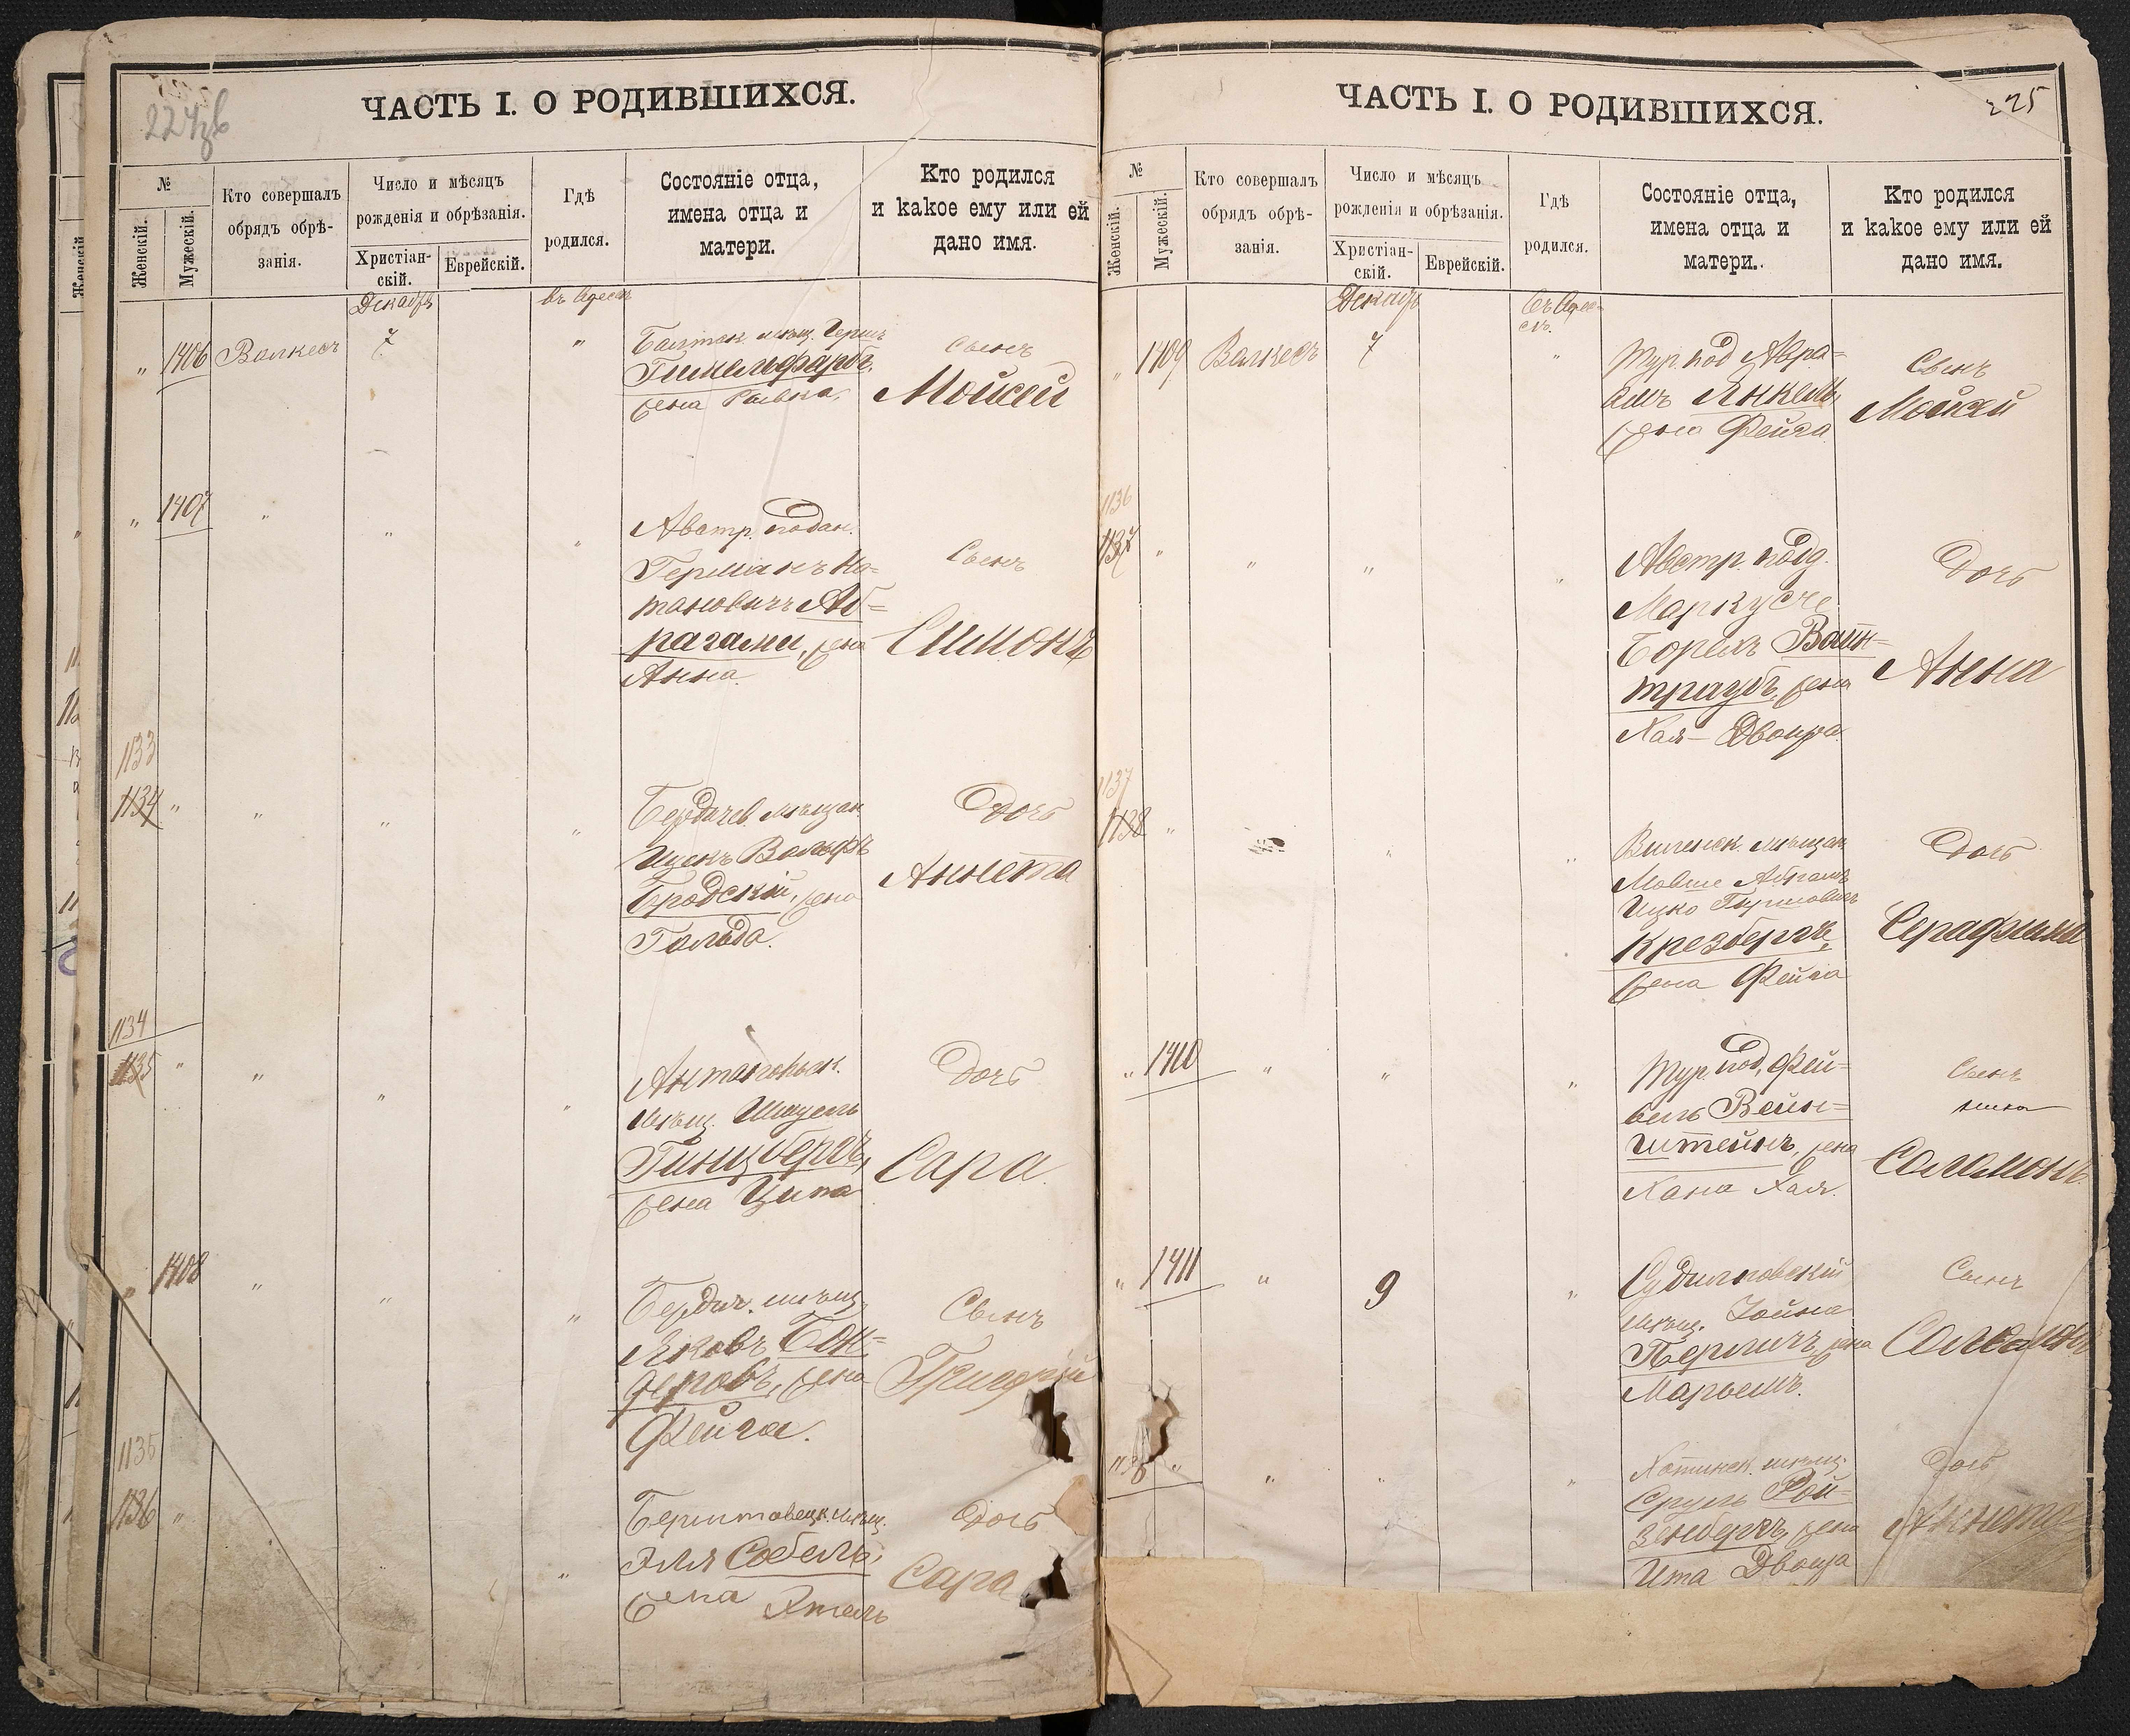 224зв
ЧАСТЬ I. О РОДИВШИХСЯ.
№
Женскій.
Мужескій.
Кто совершалъ
обрядъ обрѣ-
занія.
Число и мѣсяцъ
рожденія и обрѣзанія.
Христіан-
скій.
Еврейскій.
Гдѣ
родился.
Состояніе отца,
имена отца и
матери.
Кто родился
и какое ему или ей
дано имя.
Декабрь
въ Одессѣ
„ 1406 Валкесъ 7 „
Балтск. мѣщ. Герш
Гимельфарбъ,
жена Ривка.
Сынъ
Мойсей
„ 1407 „ „ „
Австр. подан.
Германъ На-
тановичъ Аб-
рагами, жена
Анна.
Сынъ
Симонъ
1133
1134 „ „ „ „
Бердичев. мѣщан.
Ицекъ Вольфъ
Бродскій, жена
Гольда.
Дочь
Аннета
1134
1135 „ „ „ „
мѣщ.
Гинцбергъ,
жена Ципа
Дочь
Сара.
„ 1408 „ „ „
Бердич. мѣщ.
Яковъ Бон-
деровъ, жена
Фейга.
Сынъ
1135
1136 „ „
мѣщ.
Эля Собель,
жена
Дочь
Сара
225
ЧАСТЬ I. О РОДИВШИХСЯ.
№
Женскій.
Мужескій.
Кто совершалъ
обрядъ обрѣ-
занія.
Число и мѣсяцъ
рожденія и обрѣзанія.
Христіан-
скій.
Еврейскій.
Гдѣ
родился.
Состояніе отца,
имена отца и
матери.
Кто родился
и какое ему или ей
дано имя.
Декабр
въ Одес-
сѣ.
„ 1409 Валкесъ 7 „
Тур. под. Авра-
амъ Янкель,
жена Фейга.
Сынъ
Мойсей
1136
1137 „ „ „ „
Австр. подд.
Маркусъ
Борехъ Вайн-
траубъ, жена
Хая-Двойра.
Дочь
Анна
1137
1138 „ „ „
Виленск. мѣщан.
Мовше Абрамъ
Ицко Гиршовичъ
Крезбергъ,
жена Фейга
Дочь
Серафима
„ 1410 „ „ „
Тур. под. Фей-
бель Вейн-
штейнъ, жена
Хана Хая.
Сынъ
Соломонъ.
„ 1411 „ 9 „
Судилковскій
мѣщ. Іойна
Перличъ, жена
Марьемъ.
Сынъ
1138 „ „ „ „
Хотинск. мѣщ.
Сруль Рой-
зенбергъ, жена
Ита Двойра
Дочь
Аннета